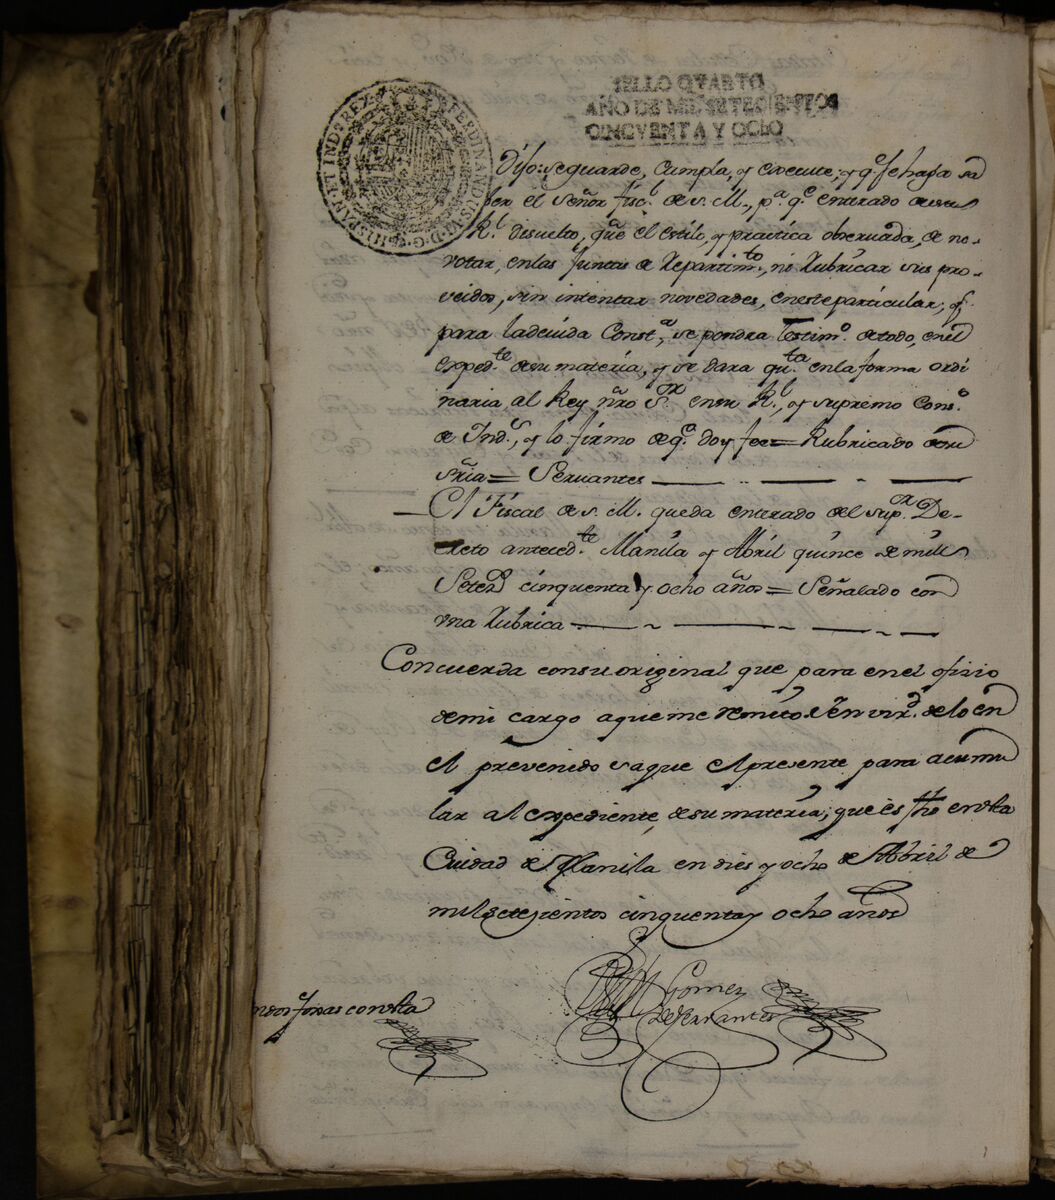 SELLO QVARTO
AÑO DE MIL SETECIENTOS
CINCVENTA Y OCHO
FERDINANDUS VI D. G. HISPAN. ET IND. REX
Dijo: se guarde, cumpla, y execute, y q.e se haga sa
ber el Señor fisc.l de S. M., p.a q.e enterado de su
R.l disuelto, que el estilo, y practica observada, de no
votar, en las Juntas de Repartim.to, ni Rubricar sus pro-
veidos, sin intentar novedades, en este particular; y
para la devida Const.a, se pondra Testim.o de todo, en el
exped.te de su materia, y se dara qu.ta en la forma ordi
naria al Rey nro S.or en su R.l, y supremo Cons.o
de Ind.s, y lo firmo de q.e doy fee = Rubricado de su
sria = Servantes
El Fiscal de S. M. queda enterado del sup.or De-
creto anteced.te Manila y Abril quince de mill
Setez.s cinquenta y ocho años = Señalado con
una Rubrica
Concuerda con su original que para en el ofisio
de mi cargo a que me remito: y en vir.d de lo en
el prevenido saque el presente para acumu
lar al expediente, de su materia; que es fho en esta
Ciudad de Manila en dies y ocho de Abril de
mil setesientos cinquenta y ocho años
Gomez
de Servantes
en dos foxas con esta